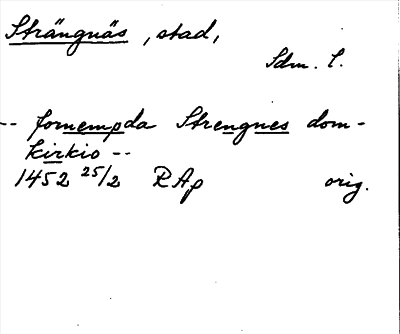 Strängnäs, stad,
Sdm. l.
-- fornempda Strengnes dom-
kirkio --
1452 25/2 RAp orig.